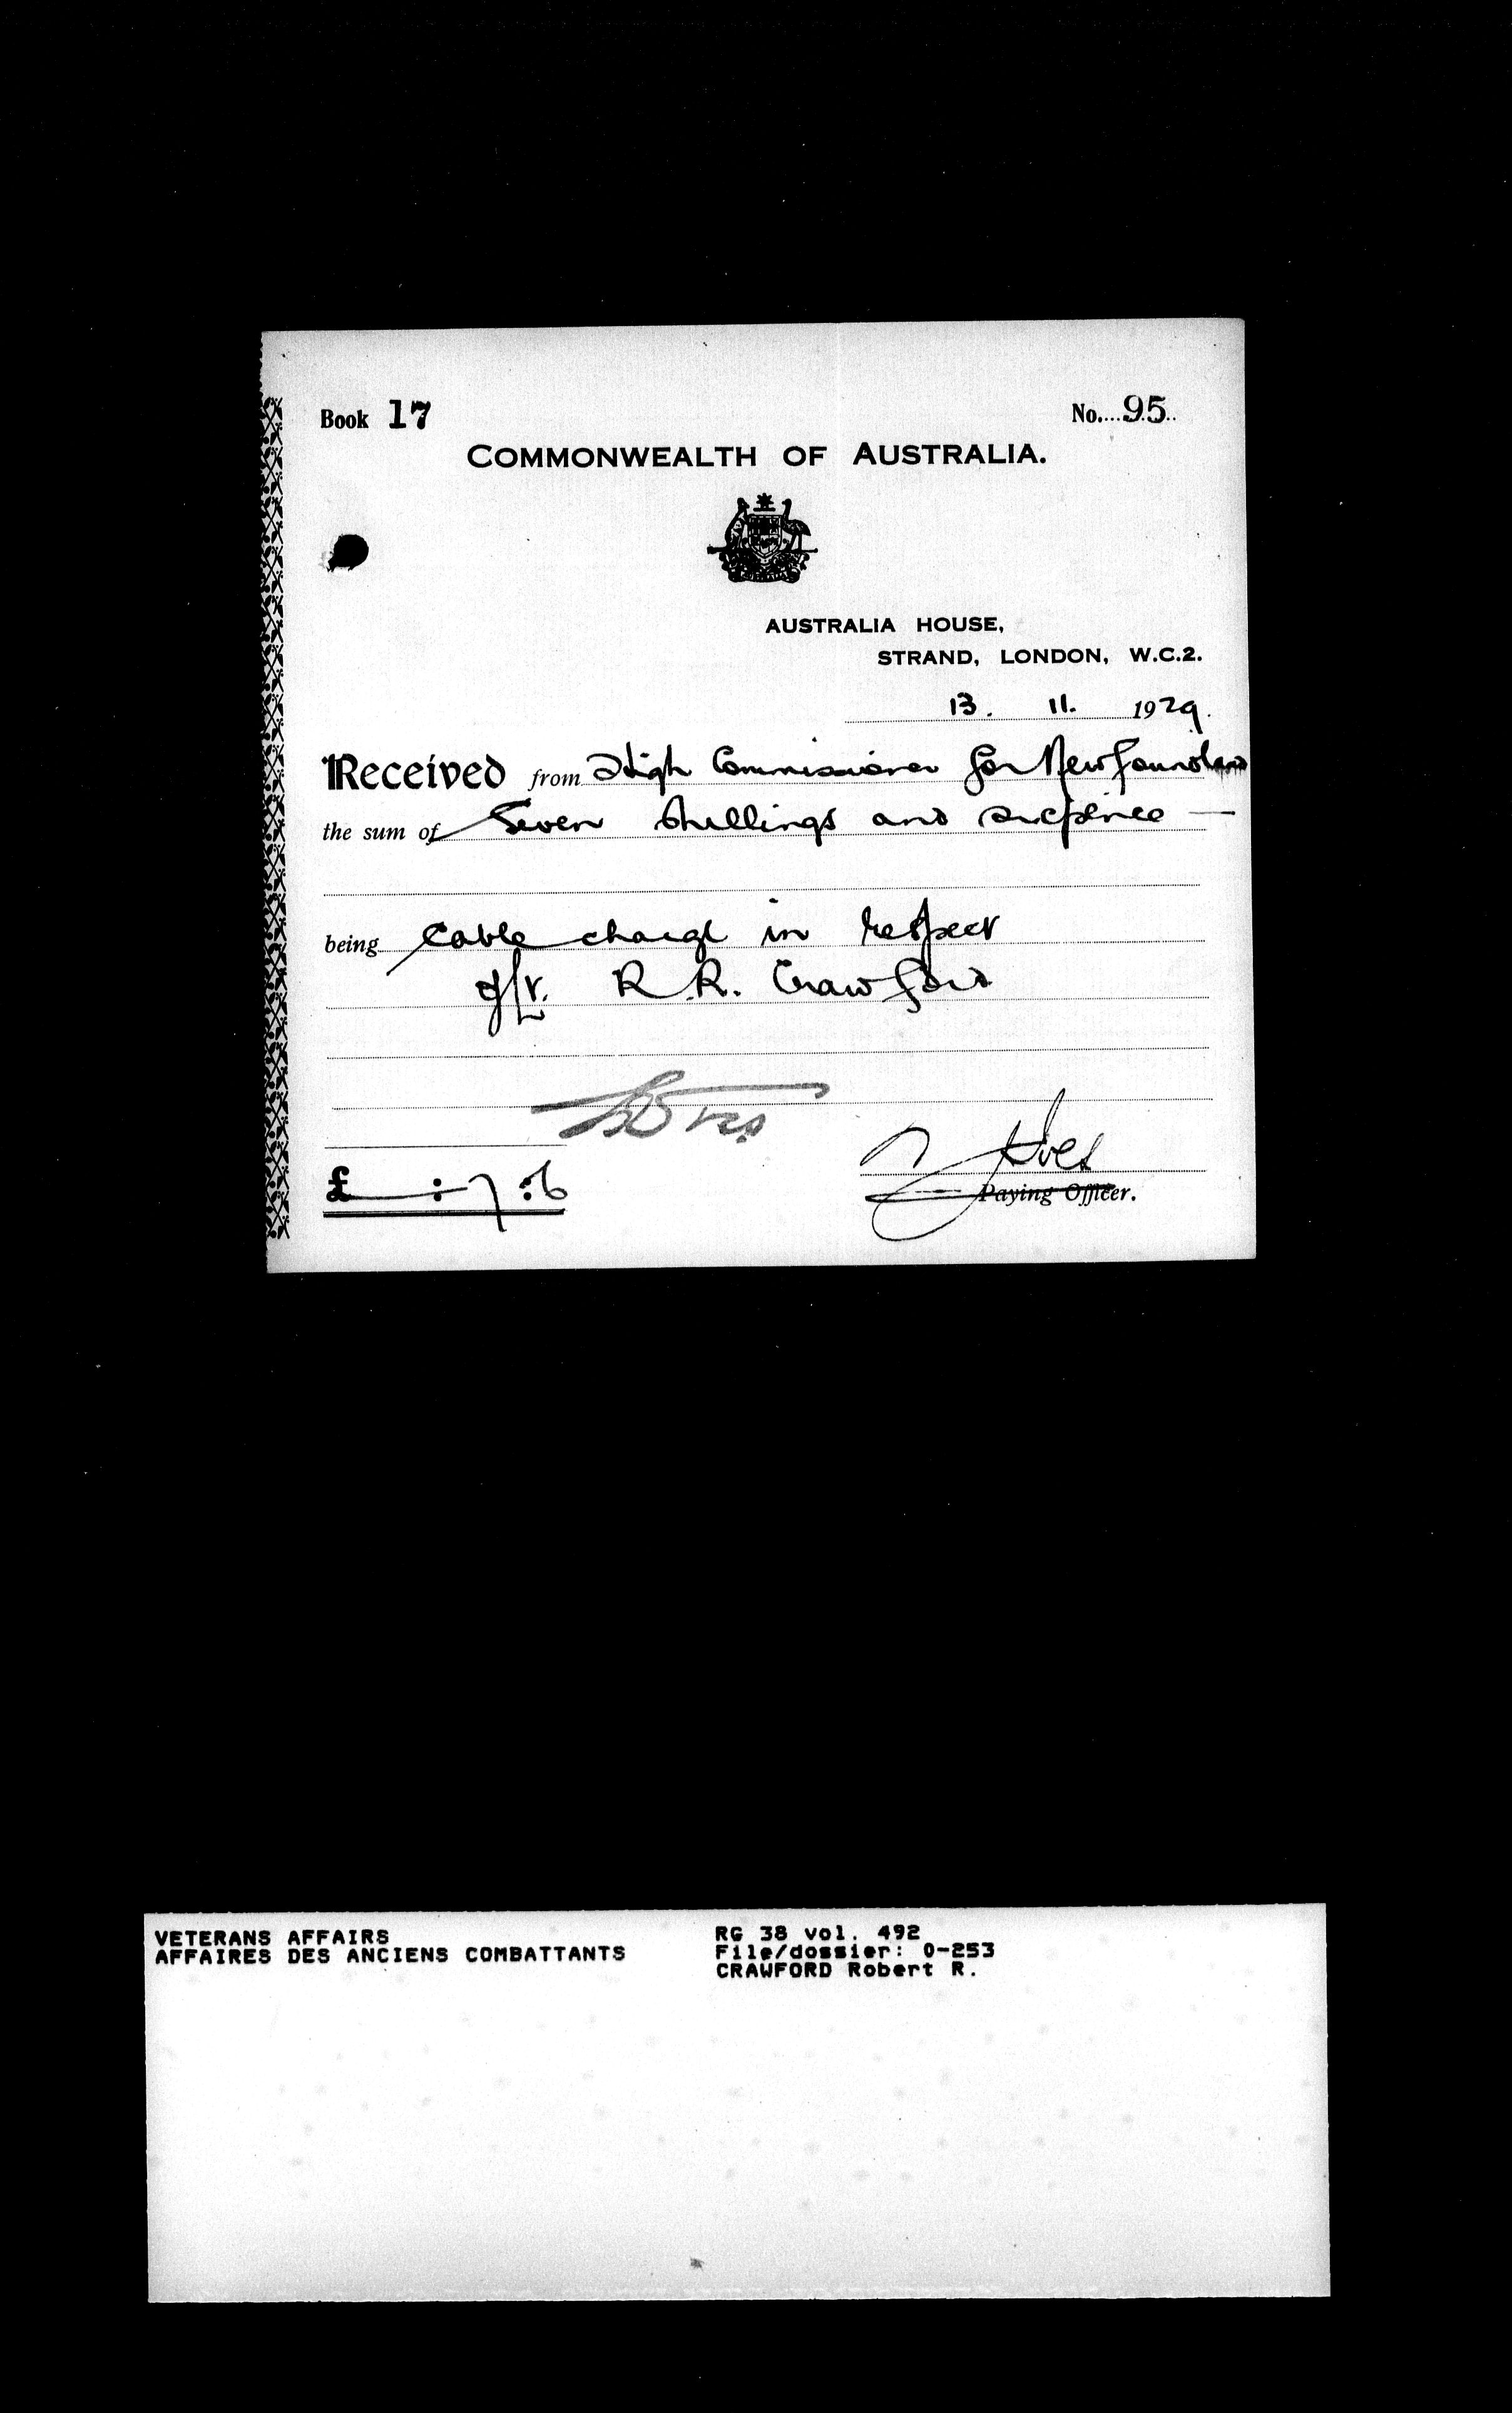 Book 17
No. 95
COMMONWEALTH OF AUSTRALIA.
AUSTRALIA HOUSE,
STRAND, LONDON, W.C.2.
13. 11. 1929.
Received from High Commissioner for Newfoundland
the sum of Seven Shillings and sixpence —
being Cable charge in respect
of R.R. Crawford
£ : 7 : 6
Paying Officer.
VETERANS AFFAIRS
AFFAIRES DES ANCIENS COMBATTANTS
RG 38 vol. 492
File/dossier: 0-253
CRAWFORD Robert R.